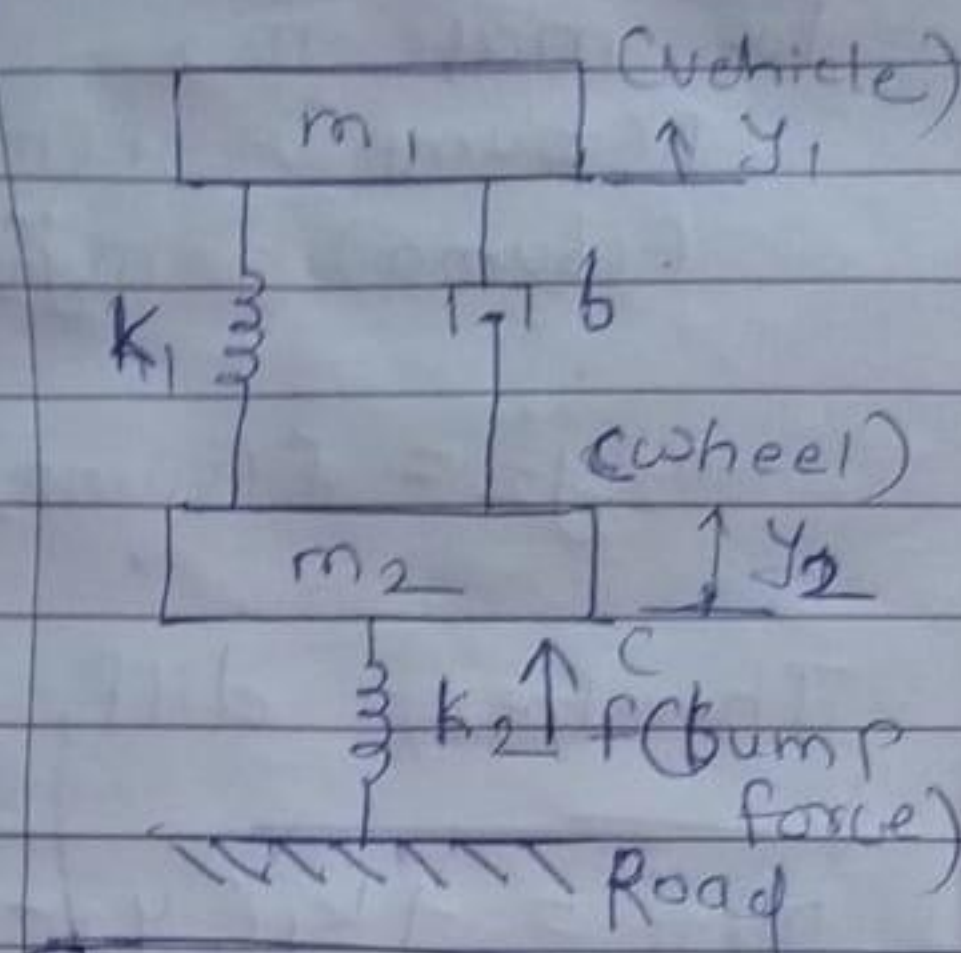 (vehicle)
m1
y1
K1
b
(wheel)
m2
y2
k2 f(bump
force)
Road